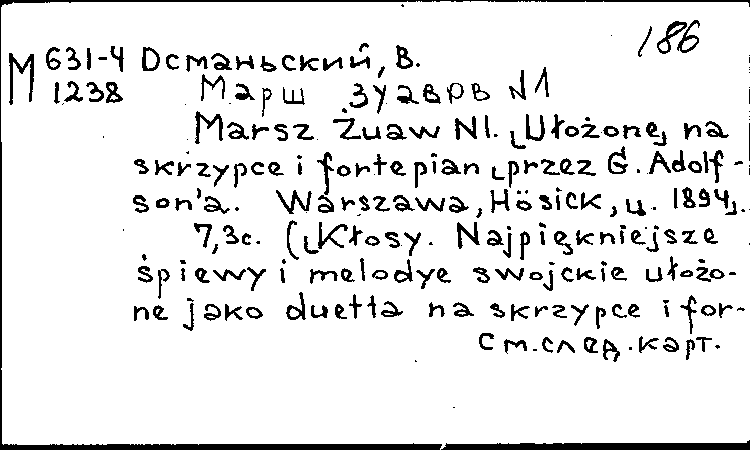 186
М 631-4 Османьский, В.
1238 Марш зуавов N 1
Marsz Żuaw N1. [Ułożone] na
skrzypce i fortepian [przez G. Adolf-
son'a. Warszawa, Hösick, ц. 1894].
7,3с. ([Kłosy. Najpiękniejsze
śpiewy i melodye swojckie ułożo-
ne jako duetta na skrzypce i for-
См. след. карт.